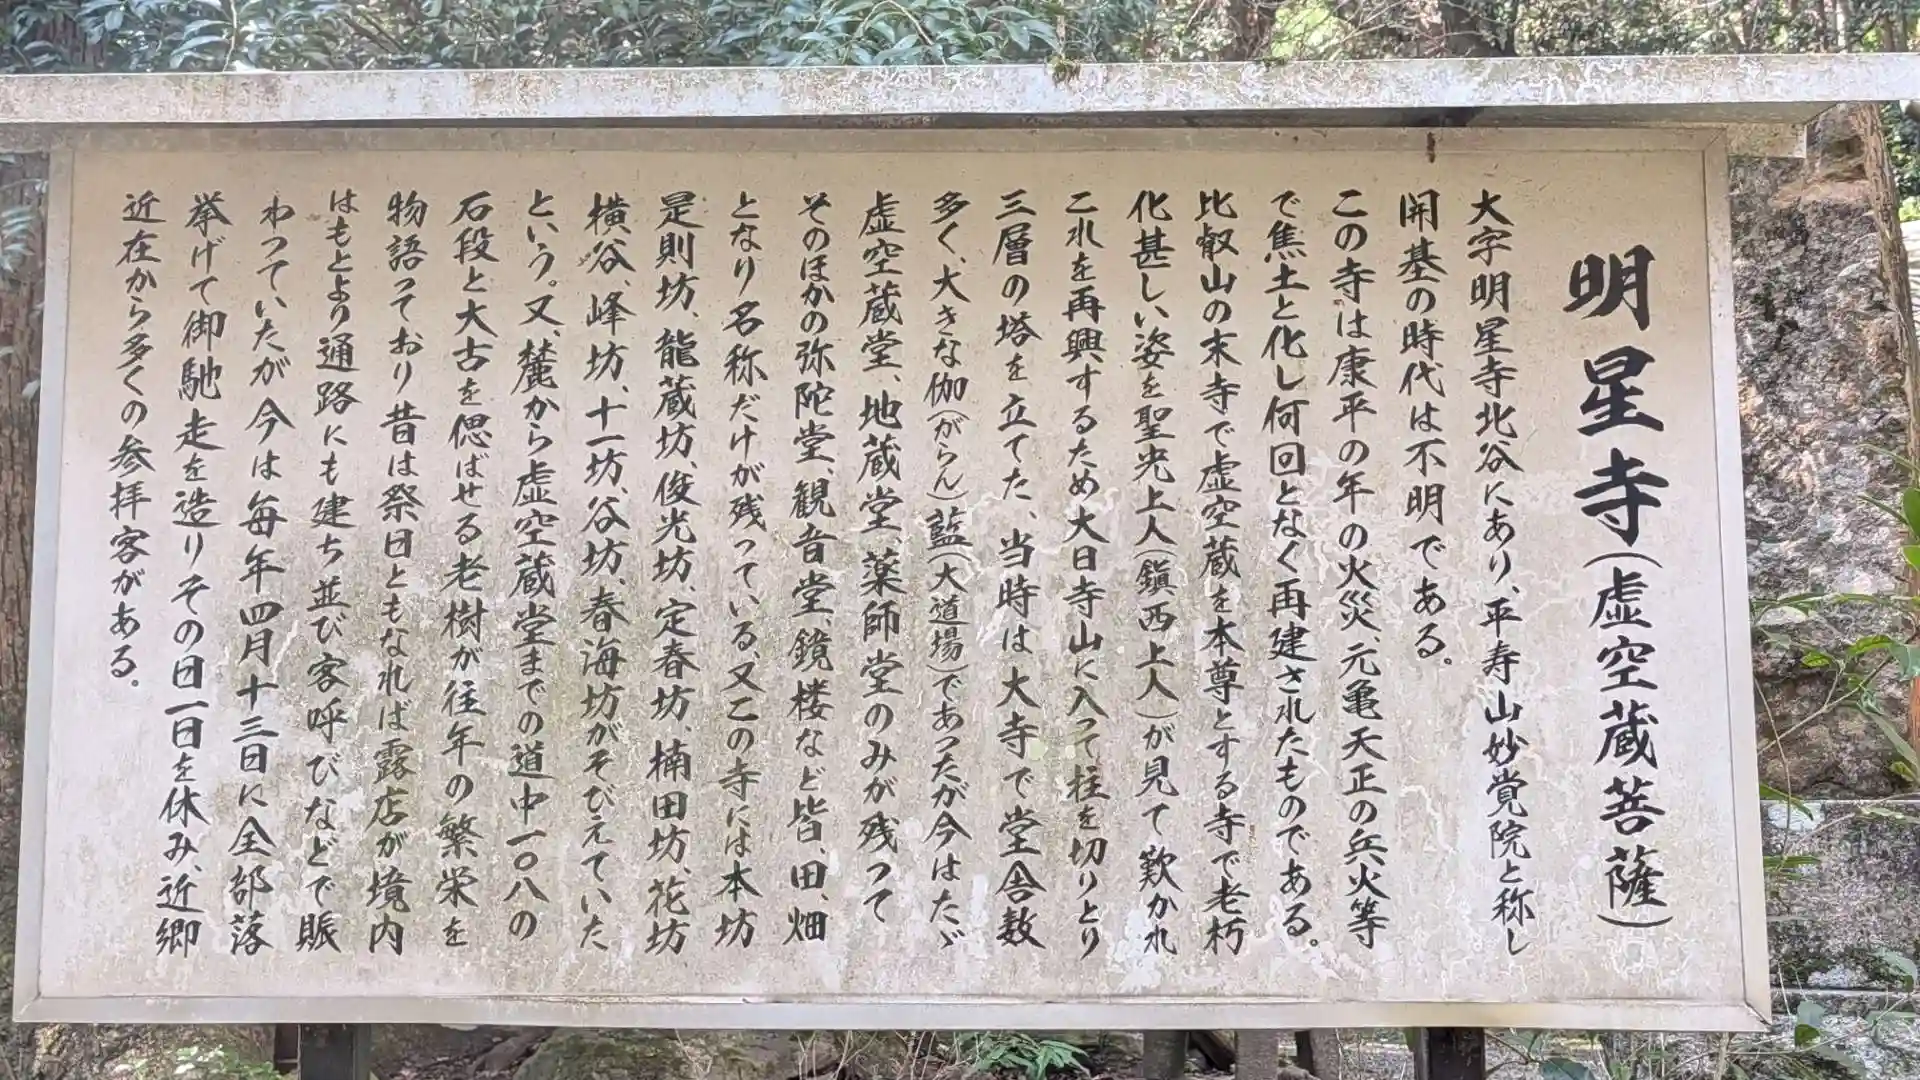 明星寺(虚空蔵菩薩)
大字明星寺北谷にあり、平寿山妙覚院と称し
開基の時代は不明である。
この寺は康平の年の火災、元亀天正の兵火等
で焦土と化し何回となく再建されたものである。
比叡山の末寺で虚空蔵を本尊とする寺で老朽
化甚しい姿を聖光上人(鎭西上人)が見て歎かれ
これを再興するため大日寺山に入って柱を切りとり
三層の塔を立てた、当時は大寺で堂舎数
多く、大きな伽(がらん)藍(大道場)であったが今はたゞ
虚空蔵堂、地蔵堂、薬師堂のみが残って
そのほかの弥陀堂、観音堂、鏡楼など皆、田、畑
となり名称だけが残っている、又この寺には本坊
是則坊、龍蔵坊、俊光坊、定春坊、楠田坊、花坊、
横谷、峰坊、十一坊、谷坊、春海坊がそびえていた
という。又、麓から虚空蔵堂までの道中一〇八の
石段と大古を偲ばせる老樹が往年の繁栄を
物語っており昔は祭日ともなれば露店が境内
はもとより通路にも建ち並び客呼びなどで賑
わっていたが今は毎年四月十三日に全部落
挙げて御馳走を造りその日一日を休み、近郷
近在から多くの参拝客がある。